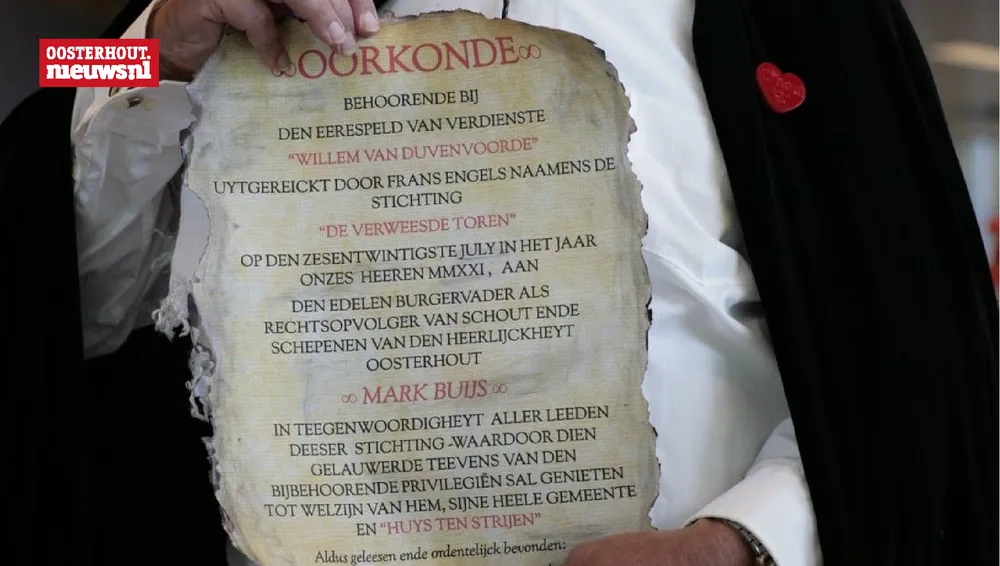 OOSTERHOUT.
nieuws.nl
∞OORKONDE∞
BEHOORENDE BIJ
DEN EERESPELD VAN VERDIENSTE
"WILLEM VAN DUVENVOORDE"
UYTGEREICKT DOOR FRANS ENGELS NAAMENS DE
STICHTING
"DE VERWEESDE TOREN"
OP DEN ZESENTWINTIGSTE JULY IN HET JAAR
ONZES HEEREN MMXXI, AAN
DEN EDELEN BURGERVADER ALS
RECHTSOPVOLGER VAN SCHOUT ENDE
SCHEPENEN VAN DEN HEERLIJCKHEYT
OOSTERHOUT
∞ MARK BUIJS ∞
IN TEEGENWOORDIGHEYT ALLER LEEDEN
DEESER STICHTING -WAARDOOR DIEN
GELAUWERDE TEEVENS VAN DEN
BIJBEHOORENDE PRIVILEGIËN SAL GENIETEN
TOT WELZIJN VAN HEM, SIJNE HEELE GEMEENTE
EN "HUYS TEN STRIJEN"
Aldus geleesen ende ordentelijck bevonden: